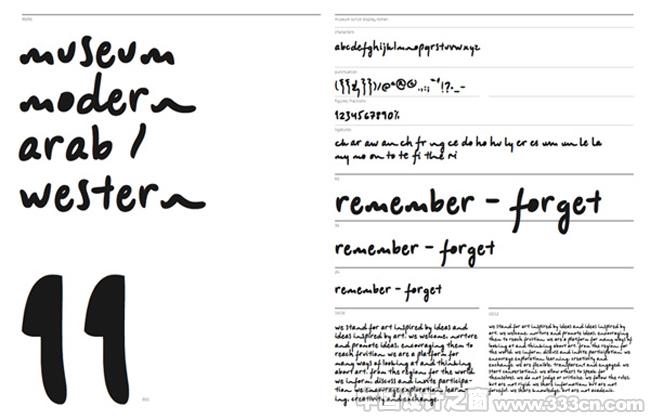 museum
modern
arab /
western
museum script display roman
characters
abcdefghijklmnopqrstuvwxyz
punctuation
figures, fractions
1234567890%
ligatures
ch ar aw an ch fr ng ce do ho hw ly er es um un le la
my mo on to te fi the ri
remember – forget
remember – forget
remember – forget
we stand for art inspired by ideas and
ideas inspired by art. we welcome, nurture
and promote ideas, encouraging them
to reach fruition. we are a platform for
many ways of looking at and thinking
about art. from the region for the world.
we inform, discuss and invite participa-
tion. we encourage exploration, learn-
ing, creativity and exchange.
we stand for art inspired by ideas and ideas inspired by
art. we welcome, nurture and promote ideas, encouraging them
to reach fruition. we are a platform for many ways of
looking at and thinking about art. from the region for
the world. we inform, discuss and invite participation. we
encourage exploration, learning, creativity and
exchange. we are flexible, transparent and engaged. we
start conversations, we allow others to speak for
themselves. we do not judge or criticise. we follow the rules,
but are not rigid. we share information but are not
forceful. we share knowledge but are not academic.
www.333cn.com